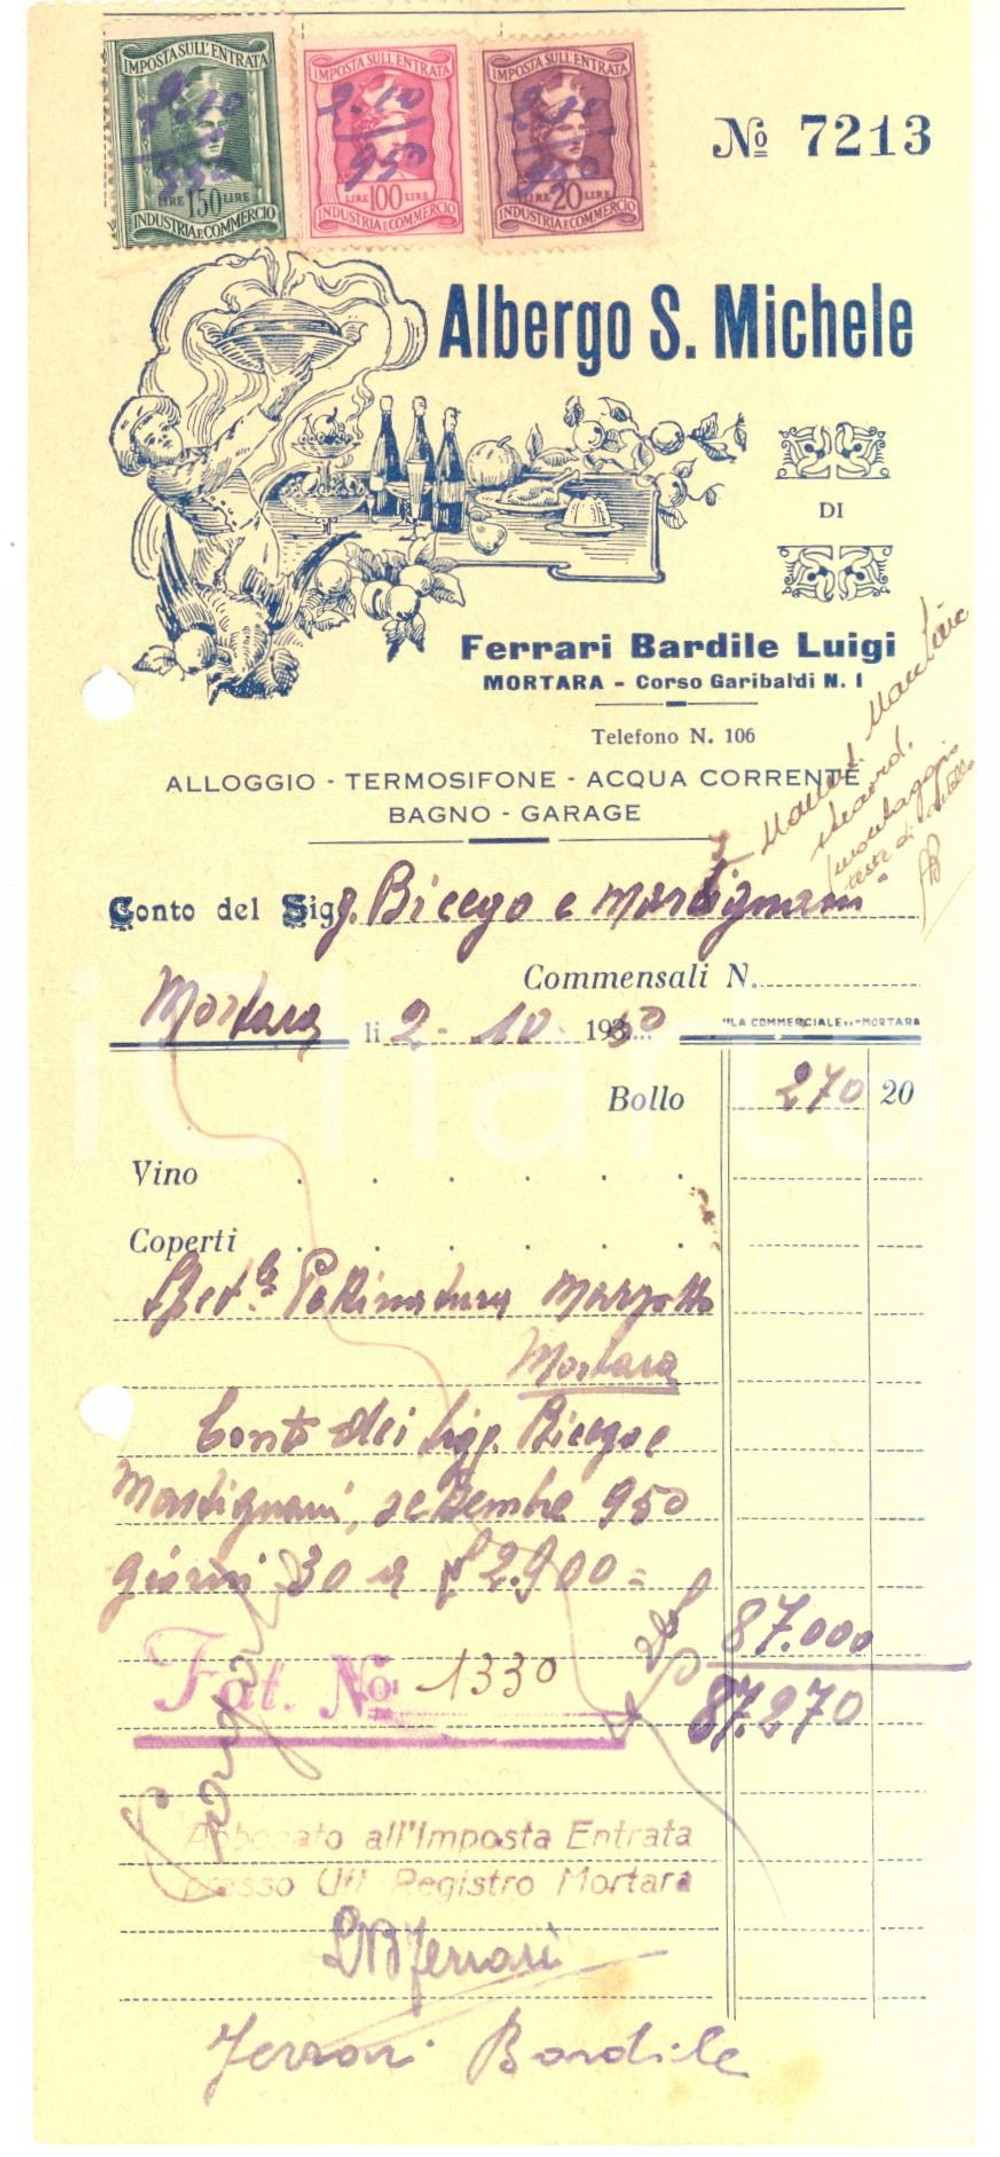 IMPOSTA SULL'ENTRATA IMPOSTA SULL'ENTRATA IMPOSTA SULL'ENTRATA
2.10 2.10 2.10
950 950 950
LIRE 150 LIRE LIRE 100 LIRE LIRE 20 LIRE
INDUSTRIA E COMMERCIO INDUSTRIA E COMMERCIO INDUSTRIA E COMMERCIO
No 7213
Albergo S. Michele
DI
Ferrari Bardile Luigi
MORTARA - Corso Garibaldi N. 1
Telefono N. 106
ALLOGGIO - TERMOSIFONE - ACQUA CORRENTE
BAGNO - GARAGE
straord.
montaggio
teste di
Conto del Sigg. Bicego e Mastignani
Commensali N.
Mortara li 2 - 10 - 1950
"LA COMMERCIALE" - MORTARA
Bollo 270 20
Vino
Coperti
Pettinatura Marzotto
Mortara
Conto dei Sigg. Bicego e
Mastignani, settembre 950
giorni 30 a £ 2.900 =
£ 87.000
Fat. No. 1330
87.270
Abbonato all'Imposta Entrata
presso Uff. Registro Mortara
Ferrari
Ferrari Bardile
iCharta